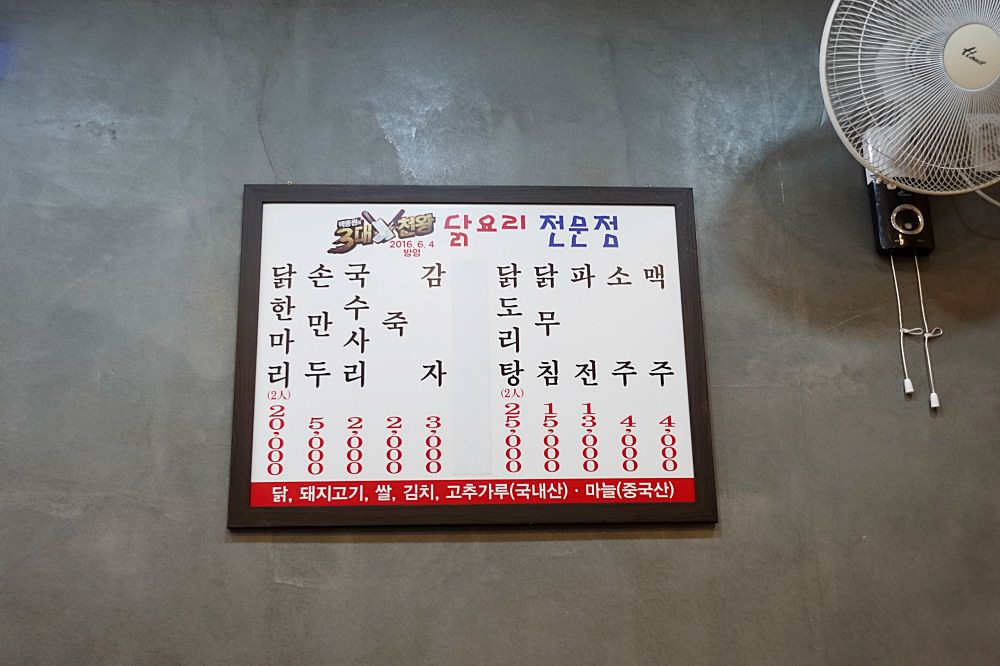 백종원의
3대천왕
2016. 6. 4
방영
닭요리 전문점
닭한마리 (2人) 20,000
손만두 5,000
국수사리 2,000
죽 2,000
감자 3,000
닭도리탕 (2人) 25,000
닭무침 15,000
파전 13,000
소주 4,000
맥주 4,000
닭, 돼지고기, 쌀, 김치, 고추가루(국내산) · 마늘(중국산)